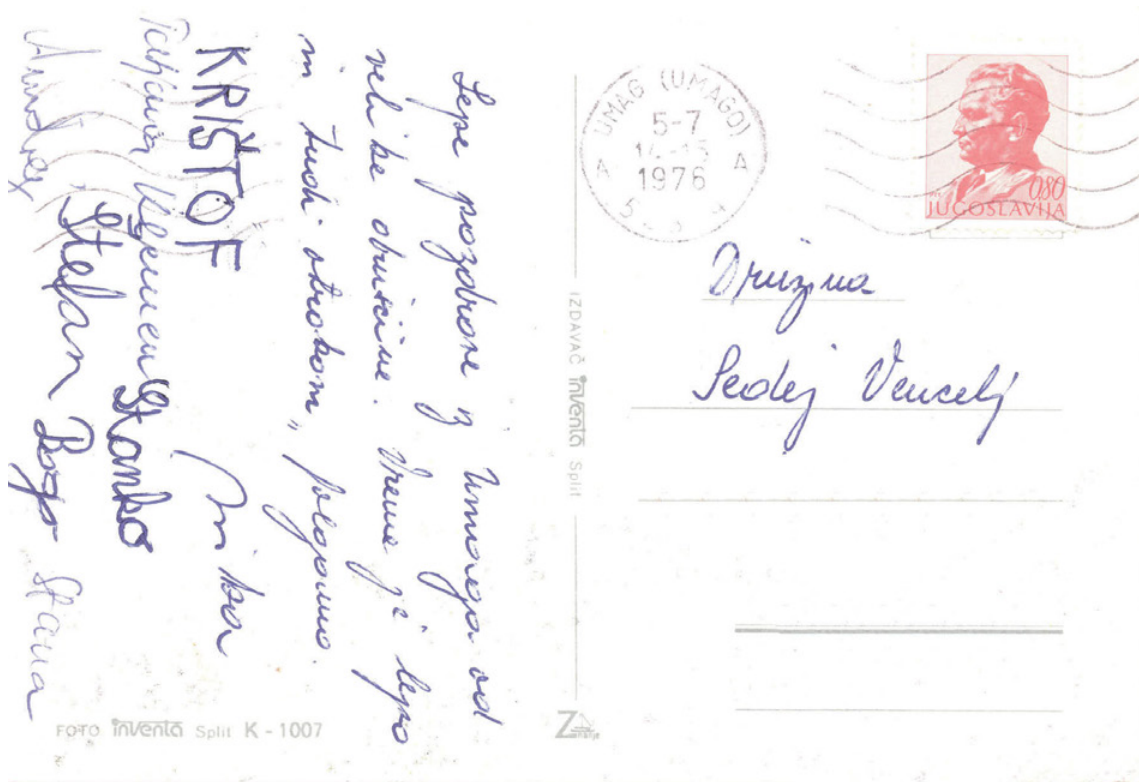 Lepe pozdrave iz Umaga od
velike obmčine. Vreme je lepo
in tudi otrokom "plajamo.
Mika
KRIŠTOF
Tatjana Klemen Stanko
Štefan
Andrej Bojo Stana
FOTO inventa Split K - 1007
IZDAVAČ inventa Split
UMAG (UMAGO)
5-7
14-15
1976
A A
0,80
JUGOSLAVIJA
Družina
Sedej Vencelj